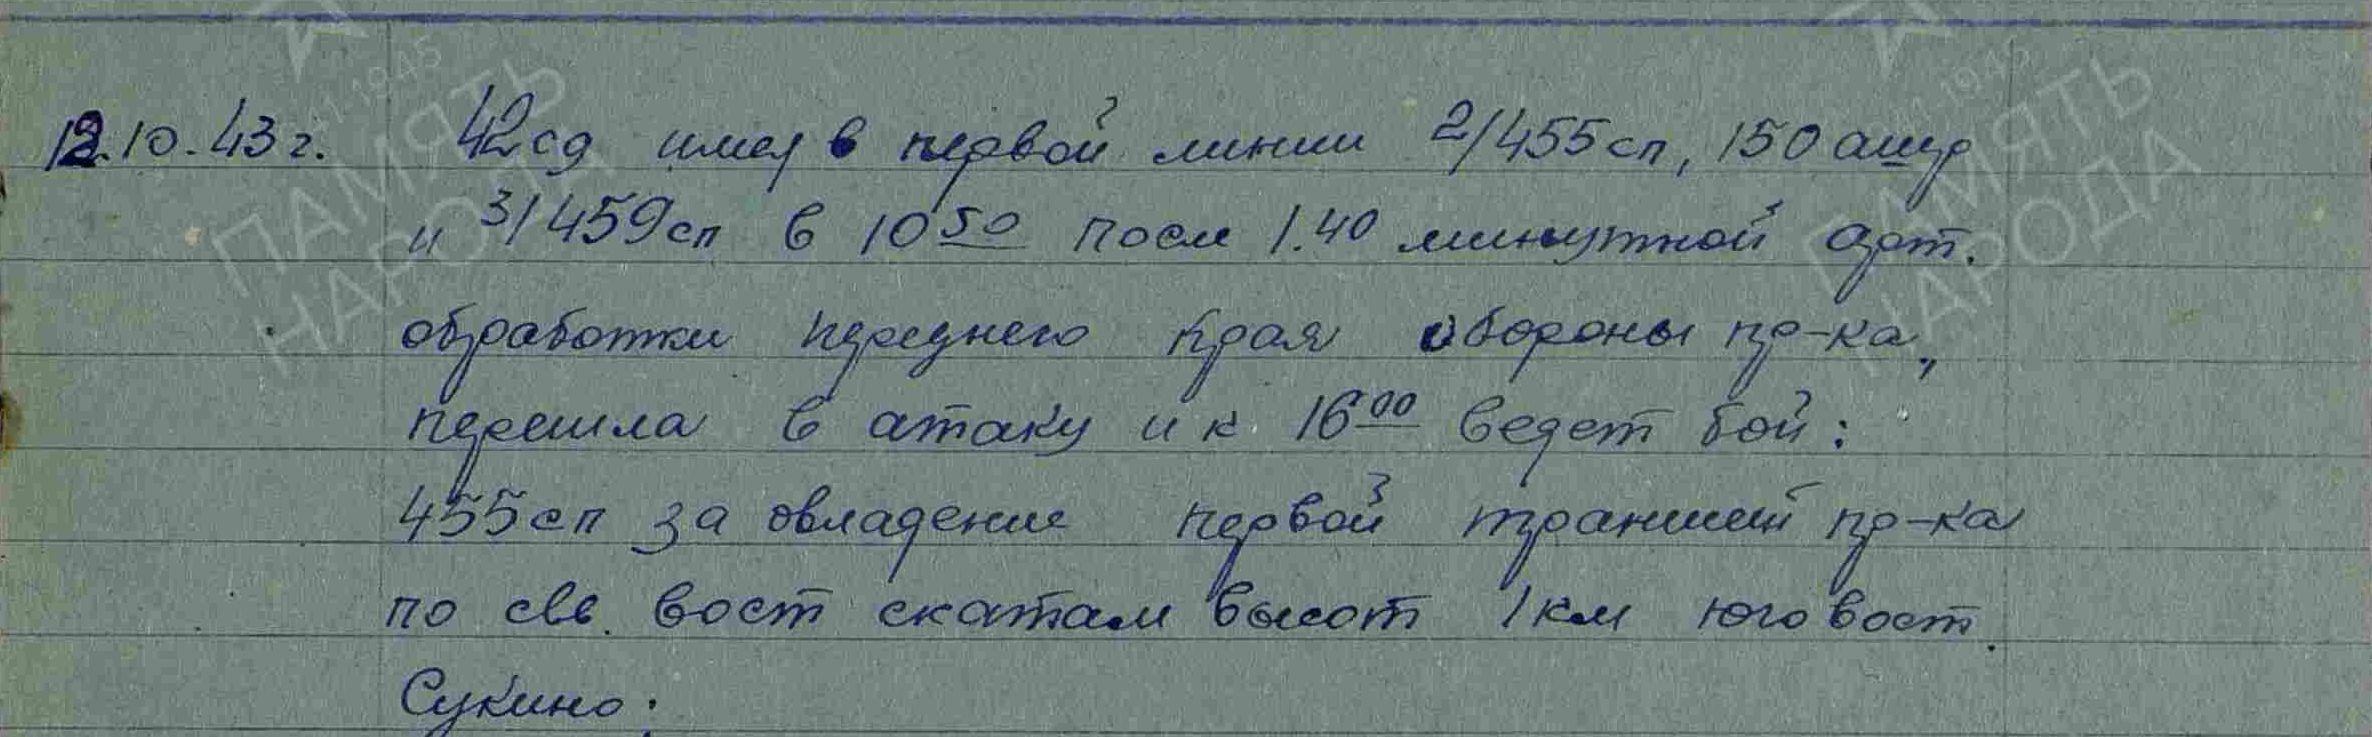 12.10.43г. 42сд имея в первой линии 2/455сп, 150 ашр
и 3/459сп в 10 50 после 1.40 минутной арт.
обработки переднего края обороны пр-ка,
перешла в атаку и к 16 00 ведет бой:
455сп за овладение первой траншеей пр-ка
по сев. вост скатам высот 1 км юговост.
Сукино;
ПАМЯТЬ
НАРОДА
ПАМЯТЬ
НАРОДА